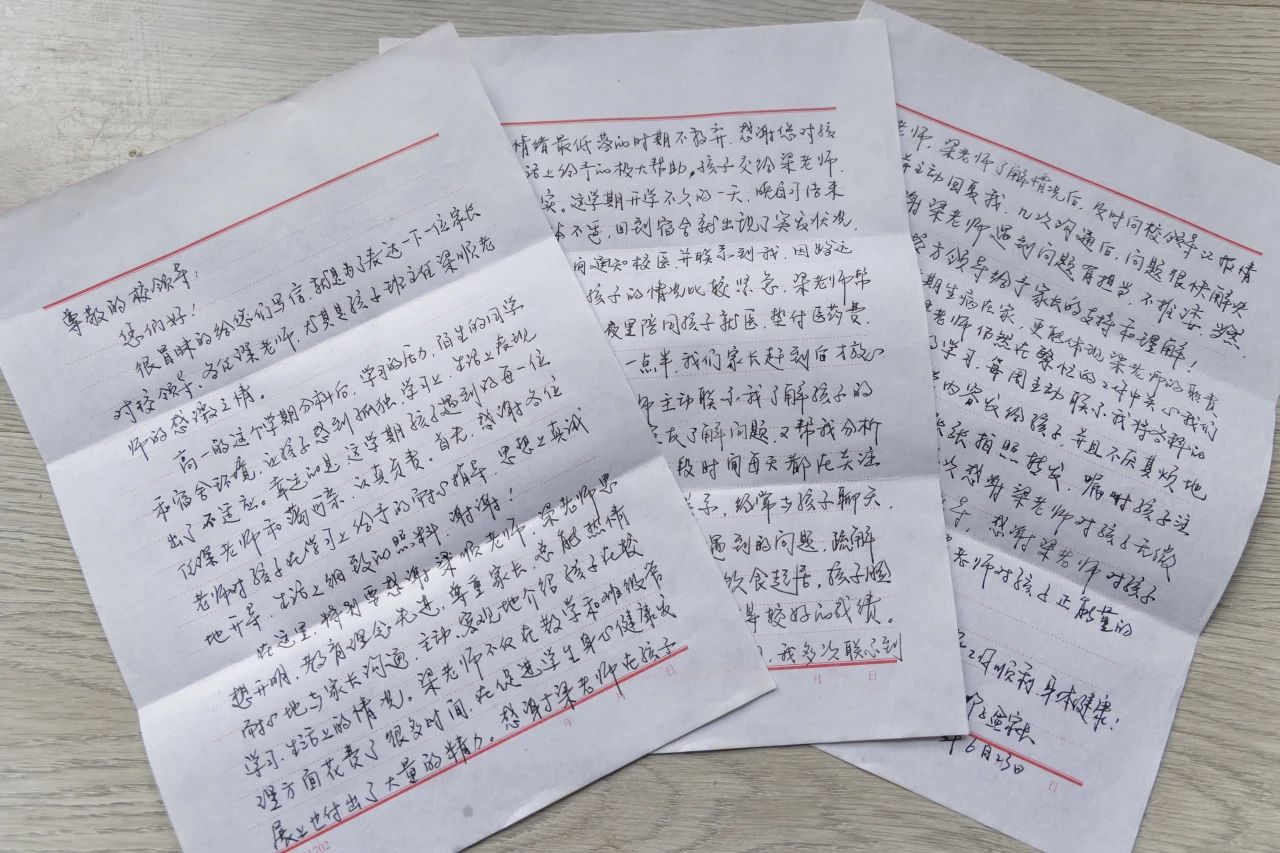 尊敬的校领导:
您们好!
很冒昧的给您们写信就是为了表达一下一位家长
对校领导、各任课老师,尤其是孩子班主任梁顺老
师的感激之情。
高一的这个学期分科后,学习的压力,陌生的同学
和宿舍环境,让孩子感到孤独,学习上、生活上表现
出了不适应。幸运的是这学期孩子遇到的每一位
任课老师和蔼可亲、认真负责。首先,感谢各位
老师对孩子在学习上给予的耐心指导,思想上真诚
地开导,生活上细致的照料,谢谢!
在这里,特别要感谢梁顺老师,梁老师思
想开明,教育理念先进,尊重家长,总能热情
耐心地与家长沟通,主动、客观地介绍孩子在校
学习、生活上的情况。梁老师不仅在教学和班级管
理方面花费了很多时间,在促进学生身心健康发
展上也付出了大量的精力。感谢梁老师在孩子
年 月 日
情绪最低落的时期不放弃,感谢您对孩
活上给予的极大帮助。孩子交给梁老师,
实。这学期开学不久的一天,晚自习结束
不适,回到宿舍就出现了突发状况,
间通知校医,并联系到我,因路远
孩子的情况比较紧急,梁老师帮
夜里陪同孩子就医,垫付医药费,
一点半我们家长赶到后才放心
师主动联系我了解孩子的
友了解问题,又帮我分析
段时间每天都在关注
孩子,经常与孩子聊天,
遇到的问题,疏解
饮食起居,孩子
较好的成绩。
,我多次联系到
月 日
老师,梁老师了解情况后,及时向校领导汇报情
并主动回复我,几次沟通后,问题很快解决
谢梁老师遇到问题有担当,不推诿,当然
领导给予家长的支持和理解!
期生病在家,更能体现梁老师的职责
老师仍然在繁忙的工作中关心我们
学习,每周主动联系我将各科的
内容发给孩子,并且不厌其烦地
张拍照转发,嘱咐孩子注
次感谢梁老师对孩子无微
感谢梁老师对孩子
老师对孩子正能量的
工作顺利,身体健康!
家长
年6月23日
日